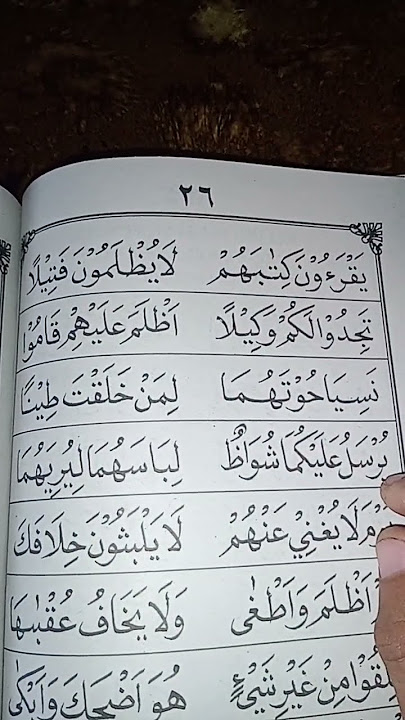 ٢٦
يَقْرَءُوْنَ كِتٰبَهُمْ لَا يُظْلَمُوْنَ فَتِيْلًا
تَجِدُوْا لَكُمْ وَكِيْلًا اَظْلَمَ عَلَيْهِمْ قَامُوْا
نَسِيَا حُوْتَهُمَا لِمَنْ خَلَقْتَ طِيْنًا
يُرْسَلُ عَلَيْكُمَا شُوَاظٌ لِبَاسَهُمَا لِيُرِيَهُمَا
لَا يُغْنِيْ عَنْهُمْ لَا يَلْبَثُوْنَ خِلَافَكَ
اَظْلَمَ وَاَطْغٰى وَلَا يَخَافُ عُقْبٰهَا
مِنْ غَيْرِ شَيْءٍ هُوَ اَضْحَكَ وَاَبْكٰى